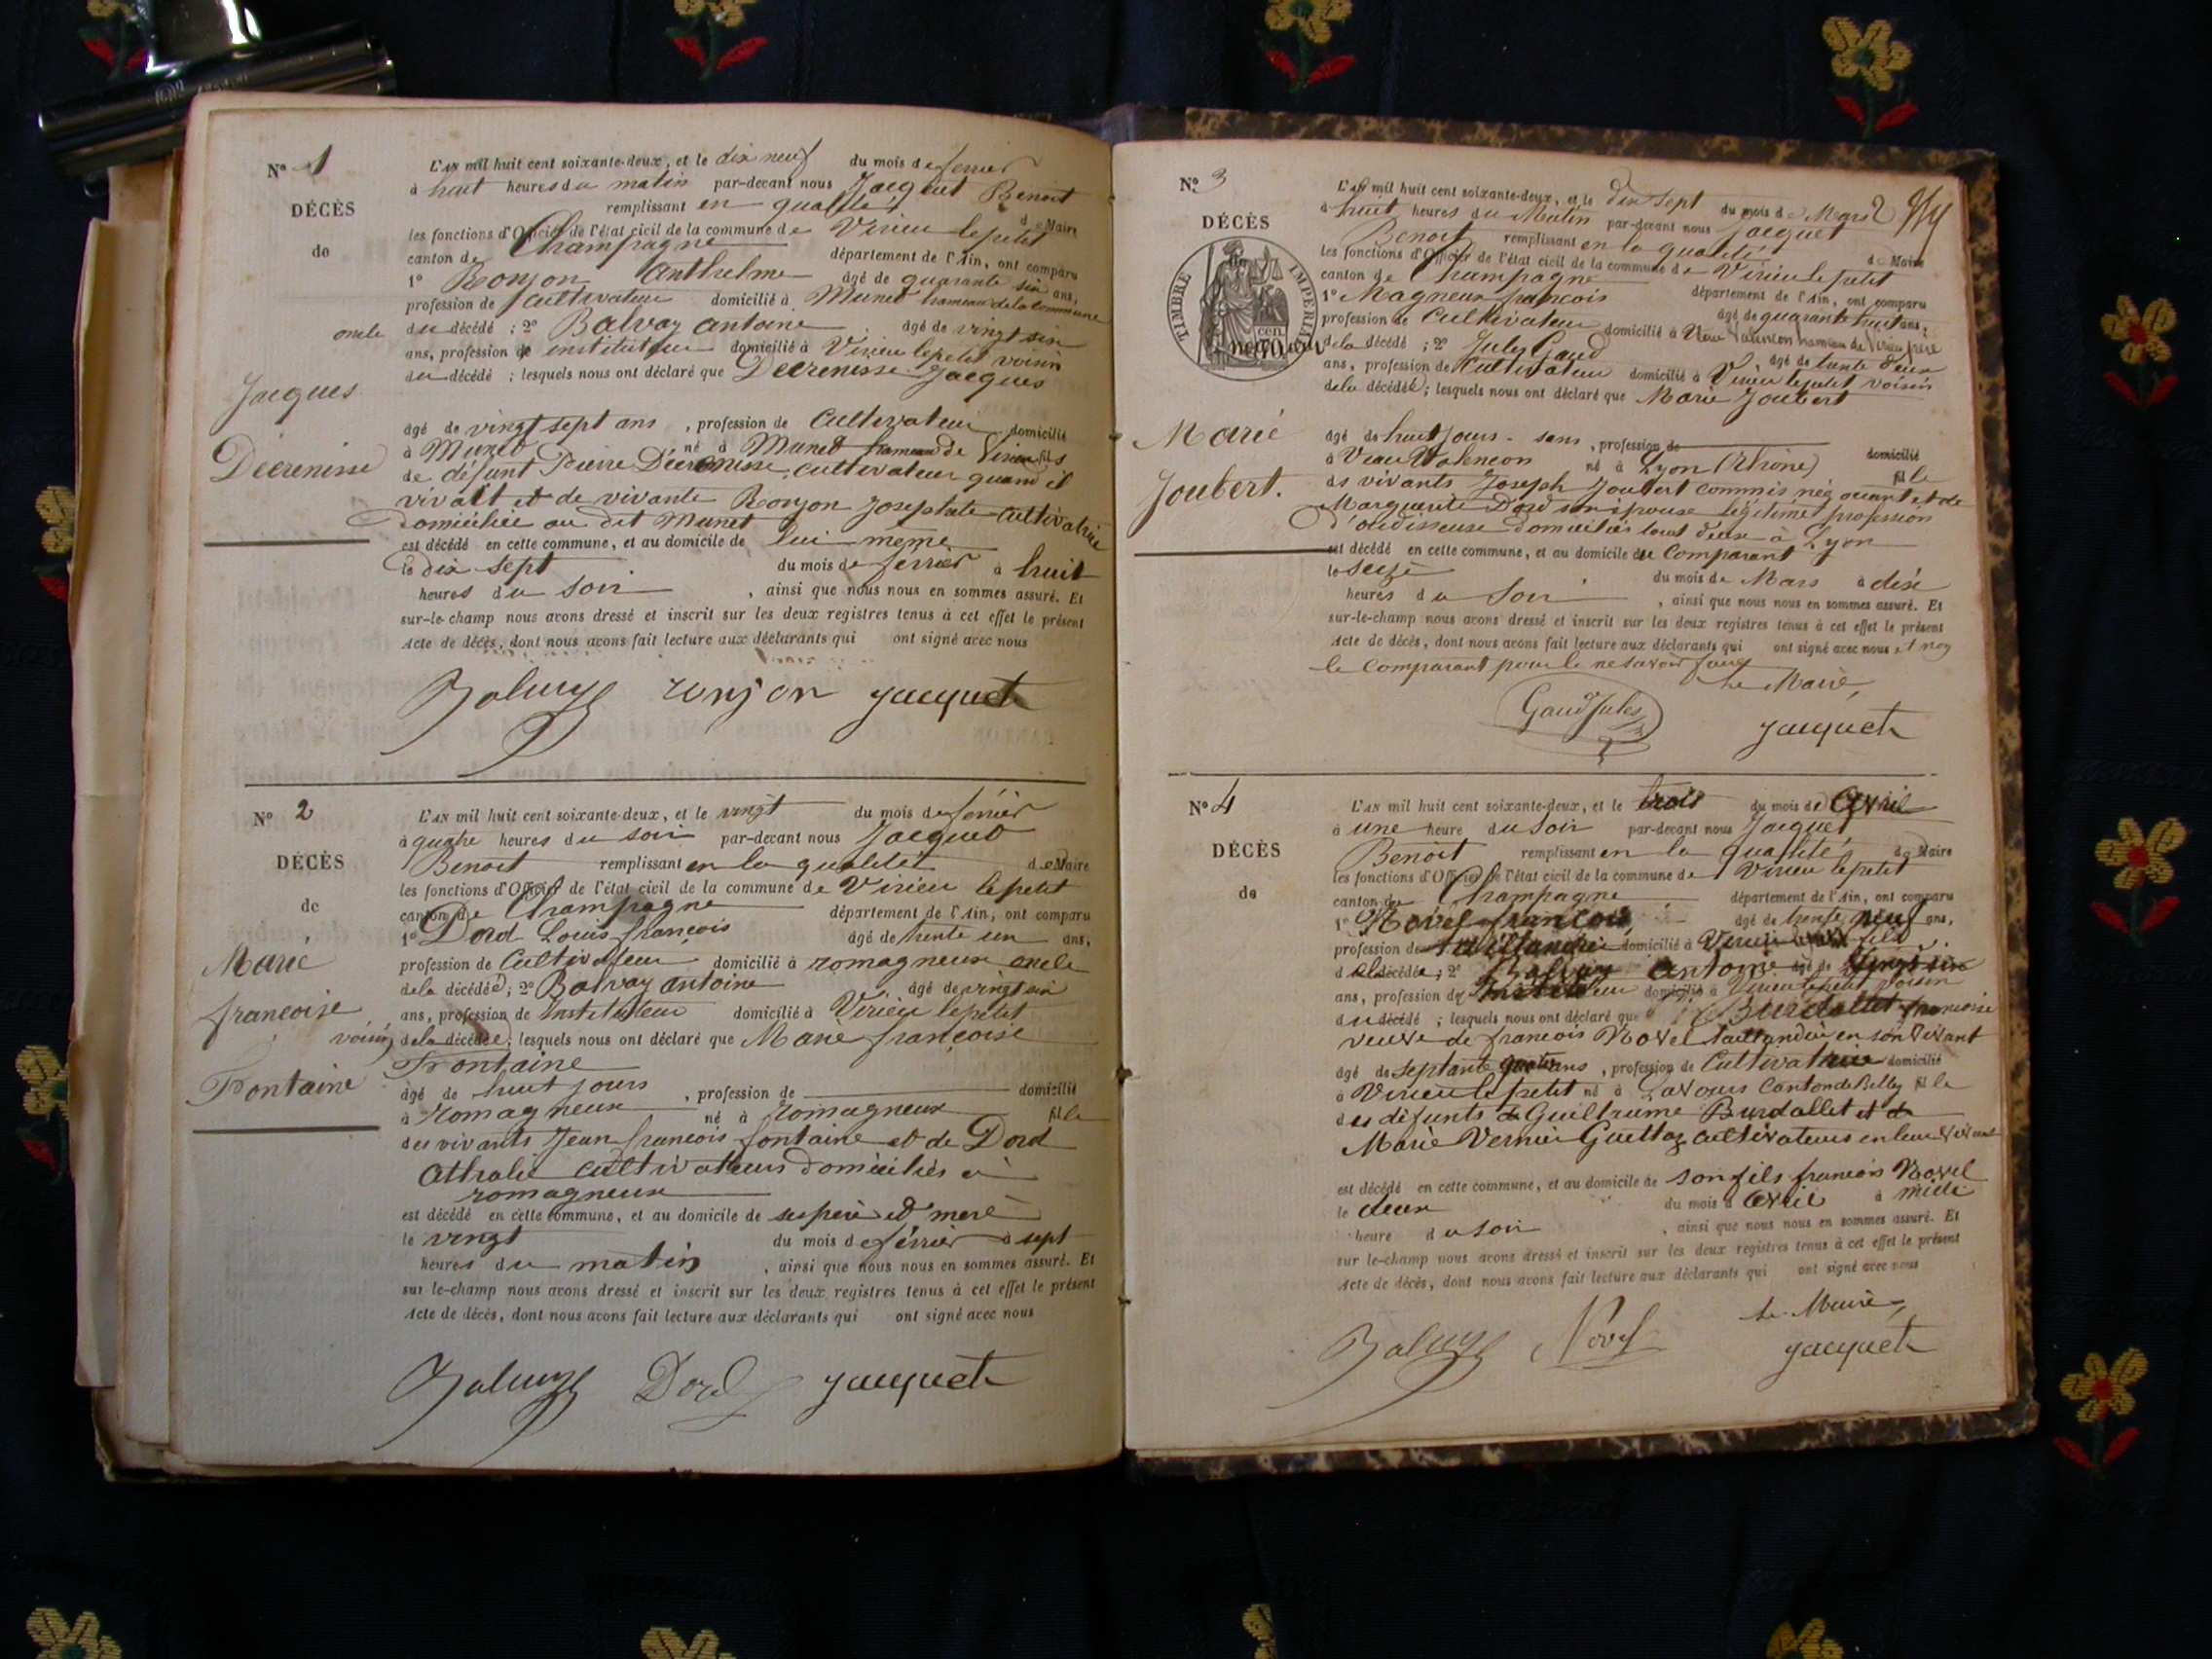 Nº 1
DÉCÈS
de
oncle
Jacques
Décrenisse
L'AN mil huit cent soixante-deux, et le dix neuf du mois de fevrier
à huit heures du matin par-devant nous Jacquet Benoit
remplissant en qualité de Maire
les fonctions d'Officier de l'état civil de la commune de Virieu le petit
canton de Champagne département de l'Ain, ont comparu
1º Ronjon Anthelme âgé de quarante six ans,
profession de cultivateur domicilié à Munet hameau de la commune
du décédé ; 2º Balvay antoine âgé de vingt six
ans, profession de instituteur domicilié à Virieu le petit voisin
du décédé ; lesquels nous ont déclaré que Décrenisse Jacques
âgé de vingt sept ans, profession de Cultivateur domicilié
à Munet né à Munet hameau de Virieu fils
de défunt Pierre Décrenisse, cultivateur quand il
vivait et de vivante Ronjon Josephte cultivatrice
domiciliée au dit Munet
est décédé en cette commune, et au domicile de lui même
le dix sept du mois de fevrier à huit
heures du soir, ainsi que nous nous en sommes assuré. Et
sur-le-champ nous avons dressé et inscrit sur les deux registres tenus à cet effet le présent
acte de décès, dont nous avons fait lecture aux déclarants qui ont signé avec nous
Balvay ronjon jacquet
Nº 2
DÉCÈS
de
Marie
françoise
voisin
Fontaine
L'AN mil huit cent soixante-deux, et le vingt du mois de février
à quatre heures du soir par-devant nous Jacquet
Benoit remplissant en la qualité de Maire
les fonctions d'Officier de l'état civil de la commune de Virieu le petit
canton de Champagne département de l'Ain, ont comparu
1º Dord Louis françois âgé de trente un ans,
profession de Cultivateur domicilié à romagneux oncle
de la décédée ; 2º Balvay antoine âgé de vingt six
ans, profession de instituteur domicilié à Virieu le petit
de la décédée ; lesquels nous ont déclaré que Marie françoise
Fontaine
âgé de huit jours, profession de domicilié
à romagneux né à romagneux fille
des vivants Jean françois fontaine et de Dord
Athalie cultivateurs domiciliés à
romagneux
est décédé en cette commune, et au domicile de ses père et mere
le vingt du mois de février à sept
heures du matin, ainsi que nous nous en sommes assuré. Et
sur-le-champ nous avons dressé et inscrit sur les deux registres tenus à cet effet le présent
acte de décès, dont nous avons fait lecture aux déclarants qui ont signé avec nous
Balvay Dord jacquet
Nº 3
DÉCÈS
de
TIMBRE IMPÉRIAL
Marie
Joubert.
L'AN mil huit cent soixante-deux, et le dix sept du mois de Mars
à huit heures du Matin par-devant nous Jacquet
Benoit remplissant en la qualité de Maire
les fonctions d'Officier de l'état civil de la commune de Virieu le petit
canton de Champagne département de l'Ain, ont comparu
1º Magneux françois âgé de quarante huit ans,
profession de Cultivateur domicilié à Vaux Valencon hameau de Virieu
de la décédé ; 2º Jules Gaud âgé de trente deux
ans, profession de Cultivateur domicilié à Virieu le petit voisin
de la décédée ; lesquels nous ont déclaré que Marie Joubert
âgé de huit jours sans, profession de domicilié
à Veau Valencon né à Lyon (Rhône) fille
des vivants Joseph Joubert commis négociant et de
Marguerite Dord son épouse légitime profession
d'ourdisseuse domiciliés tout deux à Lyon
est décédé en cette commune, et au domicile du Comparant
le seize du mois de Mars à dix
heures du Soir, ainsi que nous nous en sommes assuré. Et
sur-le-champ nous avons dressé et inscrit sur les deux registres tenus à cet effet le présent
acte de décès, dont nous avons fait lecture aux déclarants qui ont signé avec nous et non
le Comparant pour le ne savoir faire
Le Maire,
Gaud Jules jacquet
Nº 4
DÉCÈS
de
L'AN mil huit cent soixante-deux, et le trois du mois de Avril
à une heure du Soir par-devant nous Jacquet
Benoit remplissant en la qualité de Maire
les fonctions d'Officier de l'état civil de la commune de Virieu le petit
canton de Champagne département de l'Ain, ont comparu
1º Novel françois âgé de trente neuf ans,
profession de taillandier domicilié à Virieu fils
de la décédée ; 2º Balvay Antoine âgé de vingt six
ans, profession de Instituteur domicilié à Virieu le petit voisin
du décédé ; lesquels nous ont déclaré que Burdallet françoise
veuve de francois Novel taillandier en son vivant
âgé de septante quatre ans, profession de Cultivatrice domicilié
à Virieu le petit né à Lavours Canton de Belley fille
des défunts de Guillaume Burdallet et de
Marie Vernier Guettaz cultivateurs en leur vivant
est décédé en cette commune, et au domicile de son fils francois Novel
le deux du mois d'Avril à midi
heure du Soir, ainsi que nous nous en sommes assuré. Et
sur-le-champ nous avons dressé et inscrit sur les deux registres tenus à cet effet le présent
acte de décès, dont nous avons fait lecture aux déclarants qui ont signé avec nous
Le Maire,
Balvay Novel jacquet